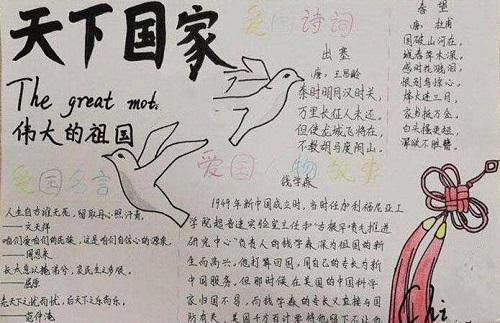 天下国家
The great mot.
伟大的祖国
爱国诗词
出塞
唐，王
秦时明月汉时关，
万里长征人未还。
但使龙城飞将在，
不教明月度阴山。
春望
唐，杜甫
国破山河在，
城春草木深。
感时花溅泪，
恨别鸟惊心。
烽火连三月，
家书抵万金。
白头搔更短，
浑欲不胜簪。
爱国名言
人生自古谁无死，留取丹心照汗青。
——文天祥
咱们爱咱们的民族，这是咱们自信心的源泉。
——周恩来
长太息以掩涕兮，哀民生之多艰。
——屈原
先天下之忧而忧，后天下之乐而乐。
——范仲淹
爱国人物故事
钱学森
1949年新中国成立时，当时任加利福尼亚工
学院超音速实验室主任和"古根罕喷气推进
研究中心"负责人的钱学森为祖国的新
生而高兴。他打算回国，用自己的专长为新
中国服务。但那时候在美国的中国科学
家归国不易，而钱学森的专长又直接与国
防有关，美国千方百计要将他留下不让他
Chi